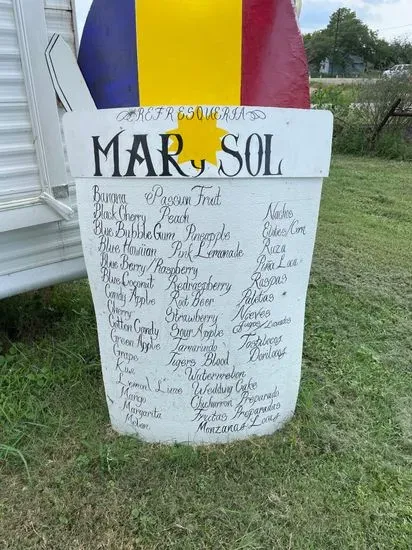 REFRESQUERIA
MAR y SOL
Banana
Black Cherry
Blue Bubble Gum
Blue Hawiian
Blue Berry/Raspberry
Blue Coconut
Candy Apple
Cherry
Cotton Candy
Green Apple
Grape
Kiwi
Lemon Lime
Mango
Margarita
Melon
Passun Fruit
Peach
Pineapple
Pink Lemonade
Redraspberry
Root Beer
Strawberry
Sour Apple
Tamarindo
Tigers Blood
Watermelon
Wedding Cake
Chicharron Preparado
Frutas Preparadas
Manzanas Locas
Nachos
Elotes/Corn
Piña Loca
Raspas
Paletas
Nieves
Tostilocos
Dorilocos